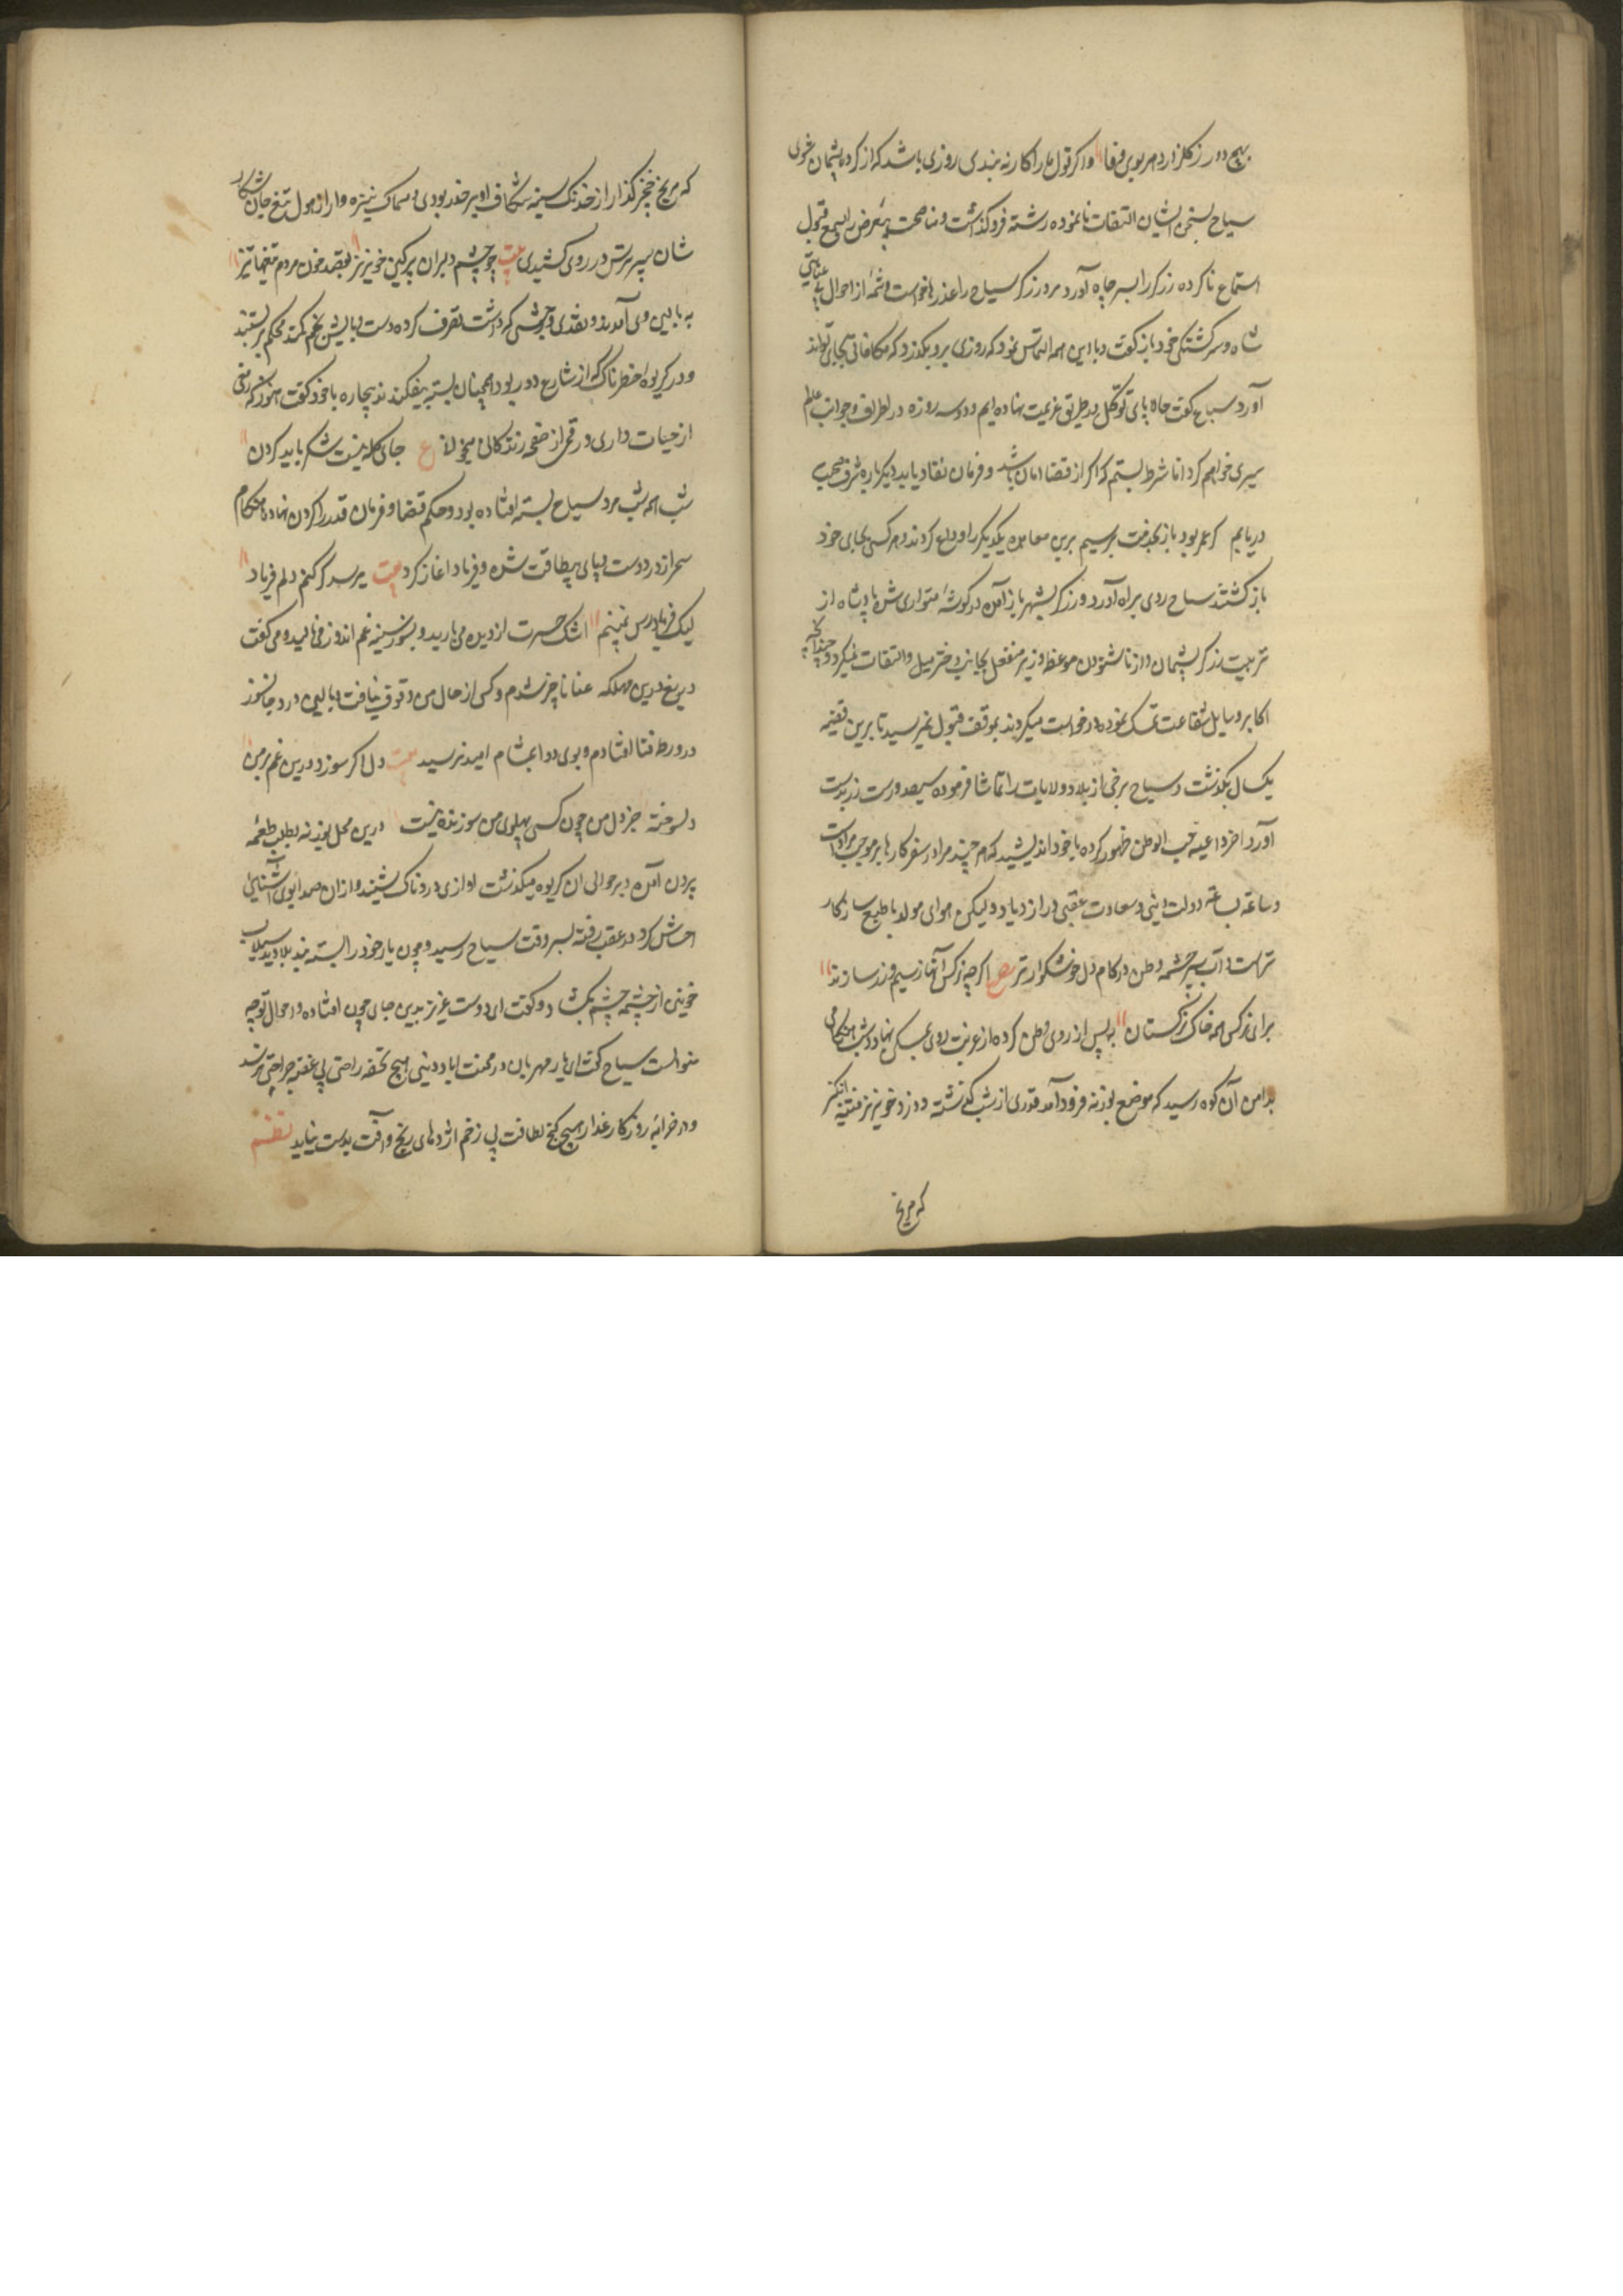 بهیچ دور ز کلزار دهر بوی وفا و اکر قول ما را کار نه بندی روزی باشد که از کرده پشیمان شوی
سیاح بسخن ایشان التفات نانموده رشته فرو کذاشت و مناصحت بی غرض را بسمع قبول
استماع ناکرده زرکر را بسر چاه آورد مرد زرکر سیاح را عذرها خواست و شمهٔ از احوال بی عنایتی
شاه و سرکشتکی خود باز کفت و با این همه التماس نمود که روزی برو بکذرد که مکافاتی بجای تواند
آورد سیاح کفت حالا پای توکل در طریق عزیمت نهاده ایم و دو سه روزه در اطراف و جوانب عالم
سیری خواهم کرد اما شرط بستم که اکر از قضا امان باشد و فرمان نفاد یابد دیکر باره شرف صحبت
دریابم کر عمر بود باز بخدمت برسیم برین معاهده یکدیکر را وداع کردند و هر کسی بجای خود
باز کشتند سیاح روی براه آورد و زرکر بشهر باز آمده در کوشهٔ متواری شد پادشاه از
تربیت زرکر پشیمان و از ناشنودن موعظه وزیر منفعل بجانب دختر میل و التفات نمیکرد و چندانکه
اکابر وسایل شفاعت تمسک نموده درخواست میکردند بموقف قبول نمیرسید تا برین قضیه
یکسال بکذشت و سیاح برخی از بلاد و ولایات را تماشا فرموده سیصد درست زر بدست
آورد آخر داعیه حب الوطن ظهور کرده با خود اندیشید که هر چند مرا در سفر کارها بر موجب مرادست
و ساعة بساعة دولت دینی و سعادت عقبی در ازدیاد و لیکن هوای مولد با طبع سازکار
تراست و آب سرچشمه وطن در کام دل خوشکوارتر ع اکرچه نرکسدانها ز سیم و زر سازند
برای نرکس همه خاک نرکستان به پس از روی وطن کرده از غربت روی بمسکن نهاد و شب هنکامی
بدامن آن کوه رسید که موضع بوزنه فرود آمد قدری از شب کذشته دو دزد خونریز فتنه انکیز
که مریخ
که مریخ خنجر کذار از خدنک سینه شکاف او بر حذر بودی و سماک نیزه وار از هول تیغ جان شکار
شان سپر ترس در روی کشیدی بیت چو چشم دلبران پر کین و خونریز بقصد خون مردم تیغها تیز
به بالین وی آمدند و نقدی و جنسی که داشت تصرف کرده دست و پایش بخم کمند محکم بر بستند
و در کریوه خطرناک که از شارع دور بود همچنان بسته بیفکندند بیچاره با خود کفت هنوز که رمقی
از حیات داری و رقمی از صفحه زندکانی میخوانی ع جای کله نیست شکر باید کردن
شب همه شب مرد سیاح بسته افتاده بود و حکم قضا و فرمان قدر را کردن نهاده هنکام
سحر از درد دست و پای بیطاقت شده و فریاد اغاز کرد بیت میرسد کر کنم دلم فریاد
لیک فریادرس نمی بینم اشک حسرت از دیده می بارید و بسوز سینه غم اندوز می نالید و می کفت
دریغ درین مهلکه عنا ناچیز شدم و کسی از حال من وقوف نیافت و بالیمی درد جانسوز
در ورطه فنا افتادم و بوی دوا بمشام امید نرسید بیت دل اکر سوزد درین غم بر من
دلسوخته جز دل من چون کسی پهلوی من سوزنده نیست درین محل بوزنه بطلب طعمه
بیرون آمده و بر حوالی ان کریوه میکذشت اوازی دردناک بشنید و از ان صدا بوی آشنایی
احساس کرد و در عقب رفته بسر وقت سیاح رسید و چون یار خود را بسته بند بلا دید سیلاب
خونین از چشمه چشم بکشاد و کفت ای دوست عزیز بدین جای چون افتاده و احوال توچه
منوالست سیاح کفت ای یار مهربان در محنت اباد دینی هیچ تحفه راحتی بی غصه جراحتی نرسد
و در خرابه روزکار غدار هیچ کنج لطافت بی زخم اژدهای رنج و آفت بدست نیاید نظم